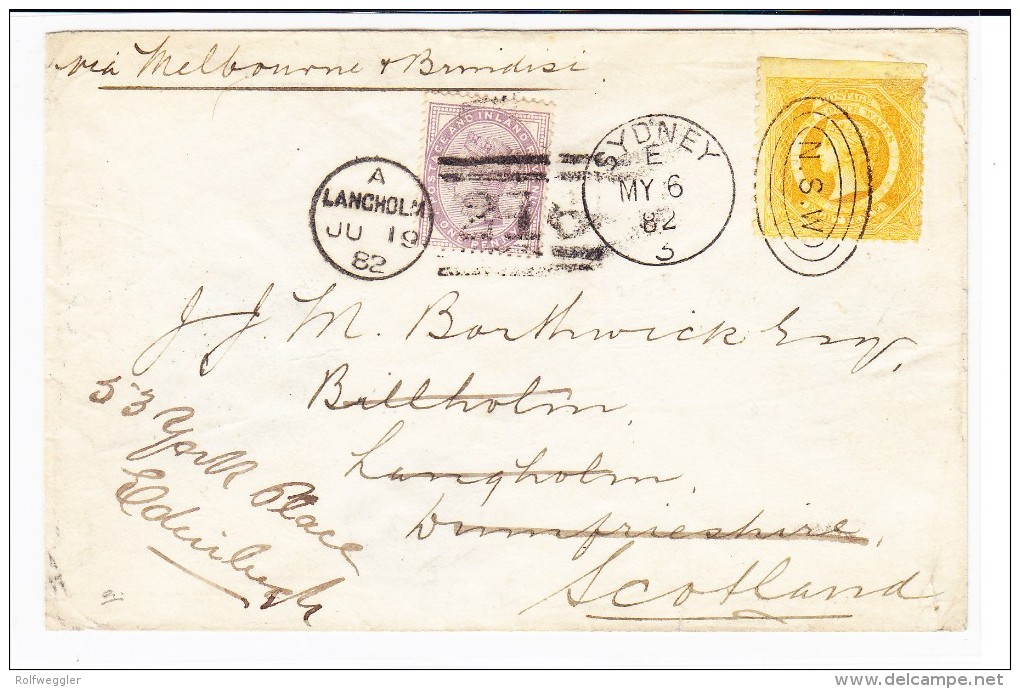 via Melbourne & Brindisi
POSTAGE AND INLAND REVENUE
ONE PENNY
216
A
LANGHOLM
JU 19
82
SYDNEY
E
MY 6
82
3
POSTAGE
N.S.W
J J M. Borthwick Esq,
Billholm,
Langholm,
Dumfrieshire,
Scotland
53 York Place
Edinburgh
Rolfweggler
delcampe.net